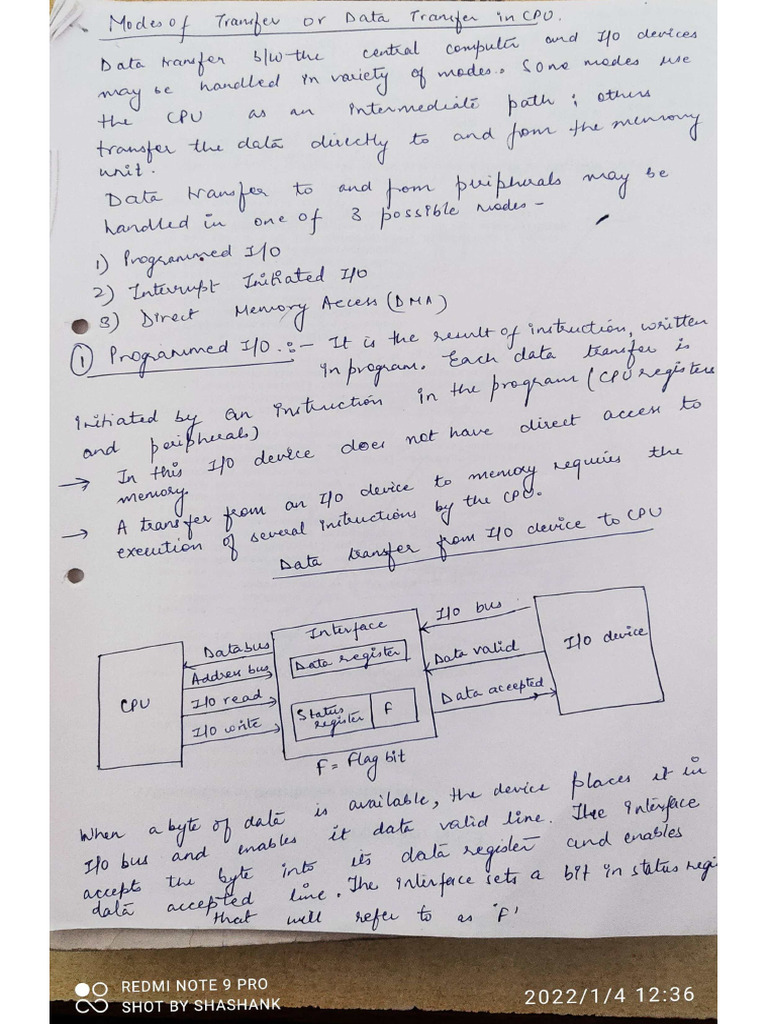 Modes of Transfer or Data Transfer in CPU.
Data transfer b/w the central computer and I/O devices
may be handled in variety of modes. Some modes use
the CPU as an intermediate path; others
transfer the data directly to and from the memory
unit.
Data transfer to and from peripherals may be
handled in one of 3 possible modes -
1) Programmed I/O
2) Interrupt Initiated I/O
3) Direct Memory Access (DMA)
① Programmed I/O. :- It is the result of instruction, written
in program. Each data transfer is
initiated by an instruction in the program (CPU registers
and peripherals)
→ In this I/O device does not have direct access to
memory.
→ A transfer from an I/O device to memory requires the
execution of several instructions by the CPU.
Data transfer from I/O device to CPU
CPU
Data bus
Address bus
I/O read
I/O write
Interface
Data register
Status register
F
F = Flag bit
I/O bus
Data valid
Data accepted
I/O device
When a byte of data is available, the device places it in
I/O bus and enables it data valid line. The interface
accepts the byte into its data register and enables
data accepted line. The interface sets a bit in status regis
that will refer to as 'F'
REDMI NOTE 9 PRO
SHOT BY SHASHANK
2022/1/4 12:36